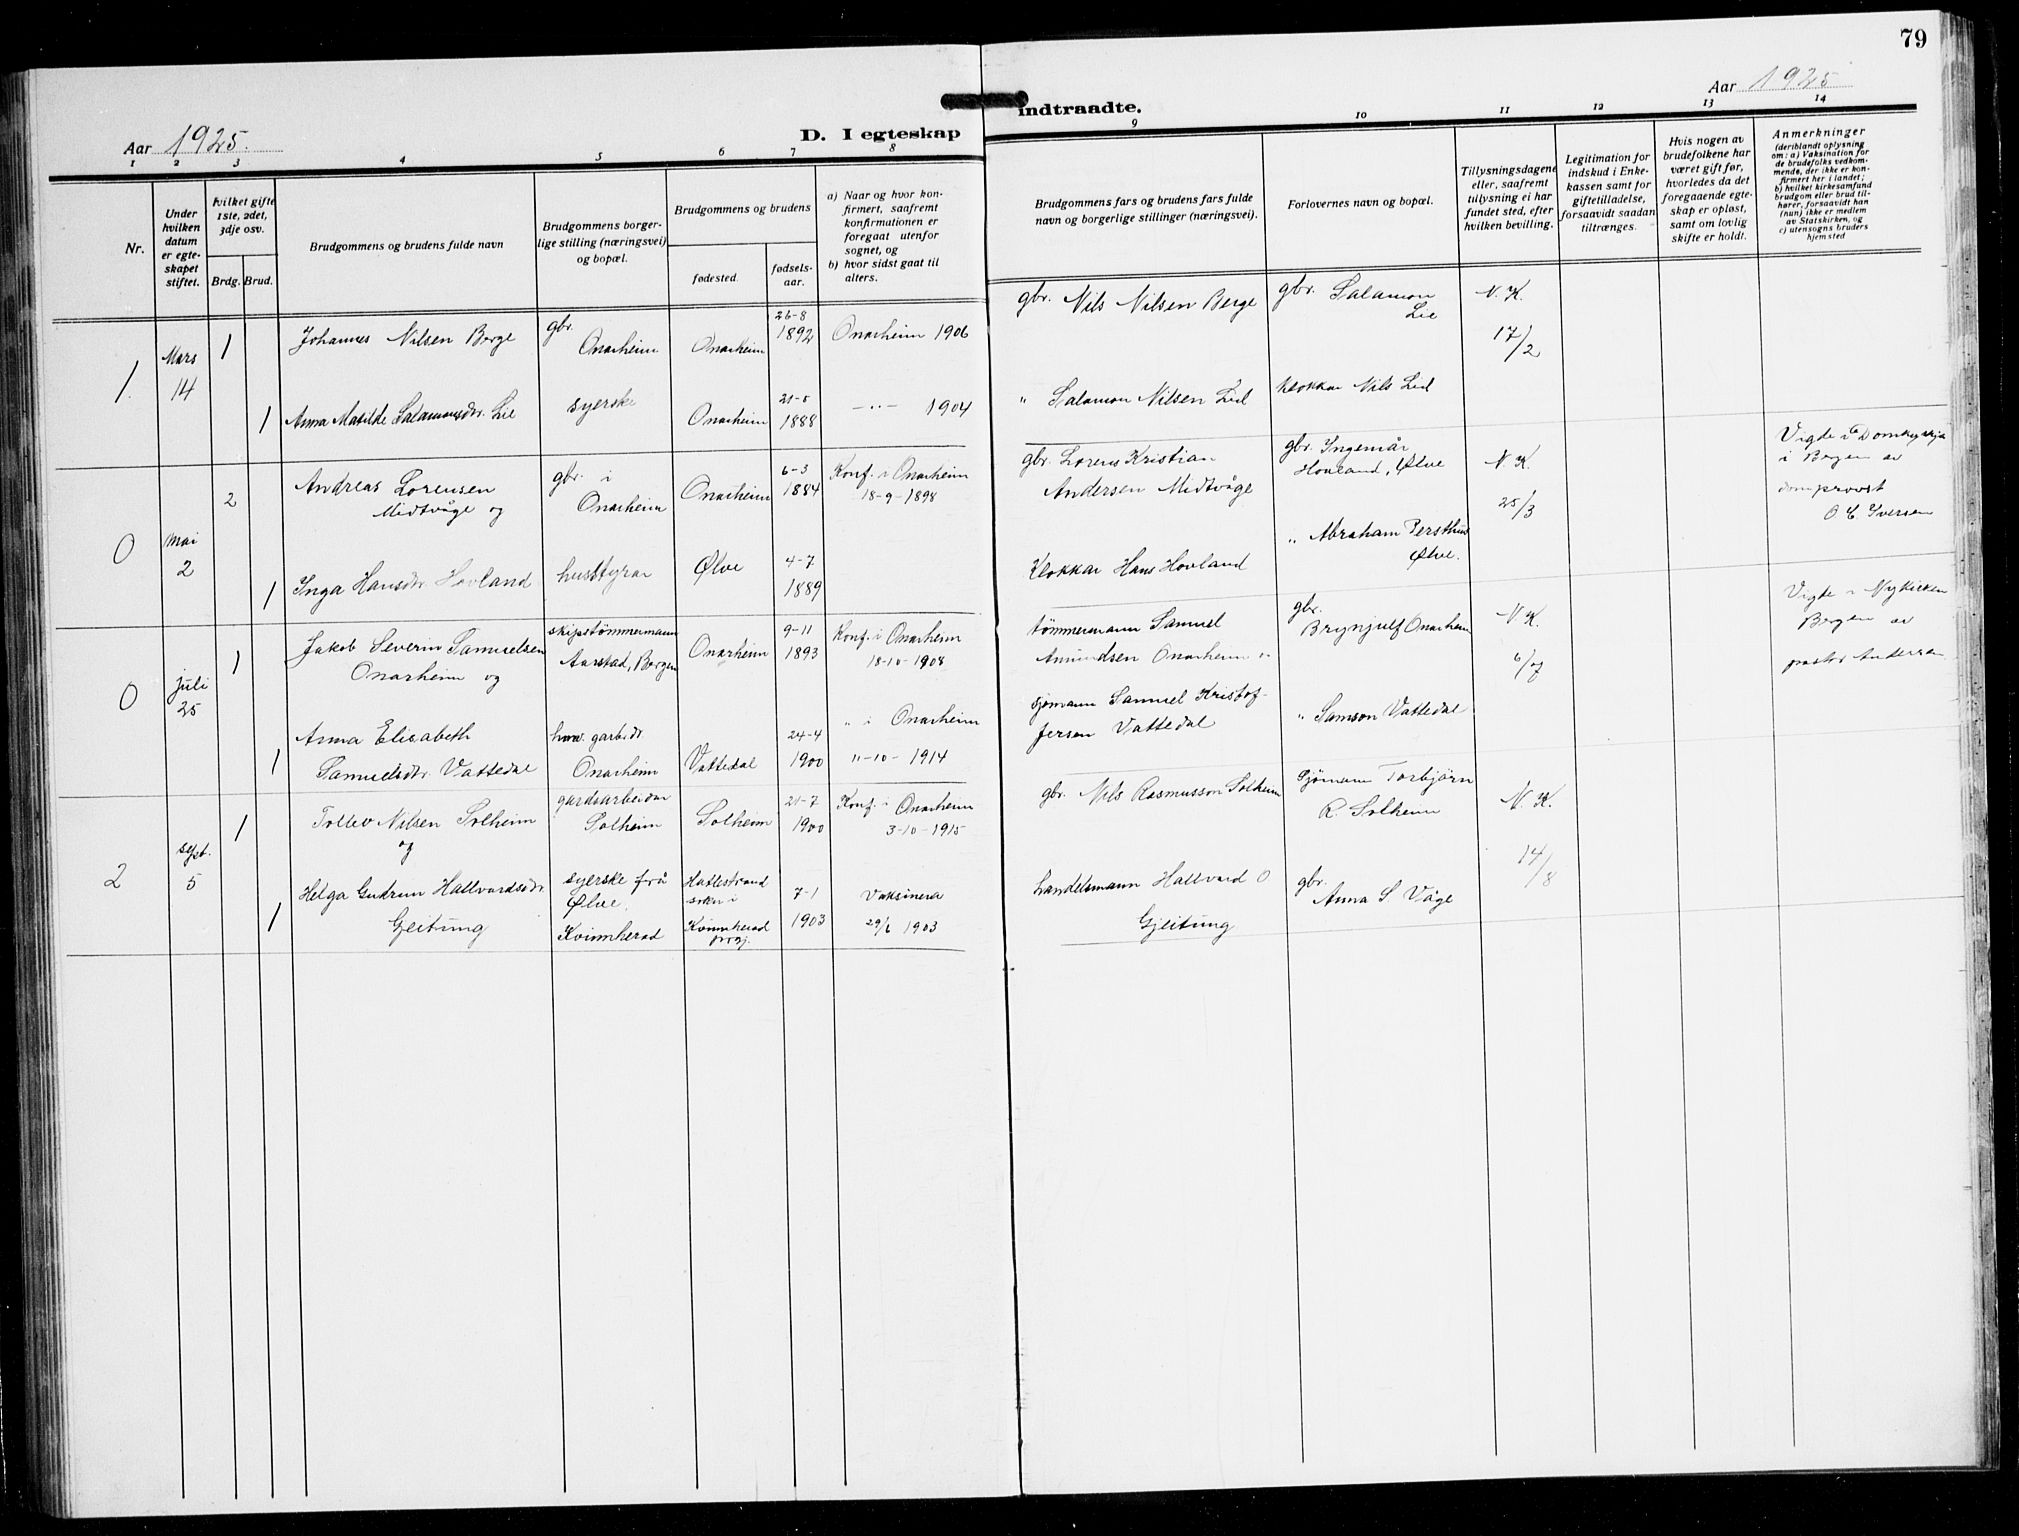 79
Aar 1925.
D. I egteskap
indtraadte.
Aar 1925
1 2 3 4 5 6 7 8
9 10 11 12 13 14
Nr.
Under hvilken datum er egteskapet stiftet.
hvilket gifte 1ste, 2det, 3dje osv.
Brdg. Brud.
Brudgommens og brudens fulde navn
Brudgommens borgerlige stilling (næringsvei) og bopæl.
Brudgommens og brudens
fødested.
fødselsaar.
a) Naar og hvor konfirmert, saafremt konfirmationen er foregaat utenfor sognet, og
b) hvor sidst gaat til alters.
Brudgommens fars og brudens fars fulde navn og borgerlige stillinger (næringsvei).
Forlovernes navn og bopæl.
Tillysningsdagene eller, saafremt tillysning ei har fundet sted, efter hvilken bevilling.
Legitimation for indskud i Enkekassen samt for giftetilladelse, forsaavidt saadan tiltrænges.
Hvis nogen av brudefolkene har været gift før, hvorledes da det foregaaende egteskap er opløst, samt om lovlig skifte er holdt.
Anmerkninger
(deriblandt oplysning om: a) Vaksination for de brudefolks vedkommende, der ikke er konfirmert her i landet; b) hvilket kirkesamfund brudgom eller brud tilhører, forsaavidt han (hun) ikke er medlem av Statskirken, og c) utensogns bruders hjemsted
1. Mars 14
1 Johannes Nilsen Berge
gbr. Onarheim
Onarheim
26-8 1892
Onarheim 1906
gbr. Nils Nilsen Berge
gbr. Salamon Lie
N. K. 17/2
1 Anna Matilde Salamonsdr. Lie
syerske
Onarheim
1888
— " — 1904
" Salamon Nilsen Lid
klokkar Nils Lid
0 mai 2
2 Andreas Lorensen Midtvåge og
gbr. i Onarheim
Onarheim
6-3 1884
Konf. i Onarheim 18-9-1898
gbr. Lorens Kristian Andersen Midtvåge
gbr. Ingemår Hovland, Ølve
N. K. 25/3
Vigde i Domkyrkja i Bergen av domprovst O. C. Iversen
1 Inga Hansdr. Hovland
husstyrar
Ølve
4-7 1889
Klokkar Hans Hovland
" Abraham Tersthus Ølve.
0 juli 25
1 Jakob Severin Samuelsen Onarheim og
skipstømmermann Aarstad, Bergen
Onarheim
9-11 1893
Konf. i Onarheim 18-10-1908
tömmermann Samuel Amundsen Onarheim
gbr. Brynjulf Onarheim
N. K. 6/7
Vigde i Nykirken Bergen av pastor Andersen
1 Anna Elisabeth Samuelsdr. Vattedal
garbeidr Onarheim
Vattedal
24-4 1900
" i Onarheim 11-10-1914
sjømann Samuel Kristoffersen Vattedal
" Samson Vattedal
2 sept. 5
1 Tollev Nilsen Solheim og
gardsarbeidar Solheim
Solheim
21-7 1900
Konf. i Onarheim 3-10-1915
gbr. Nils Rasmusson Solheim
Sjömann Torbjörn R. Solheim
N. K. 14/8
1 Helga Gudrun Hallvardsdr. Gjeitung
syerske frå Ølve. Kvinnherad
Hattestrand sokn i Kvinnherad prgj.
7-1 1903
Vaksinera 29/6 1903
handelsmann Hallvard O Gjeitung
gbr. Anna S. Våge